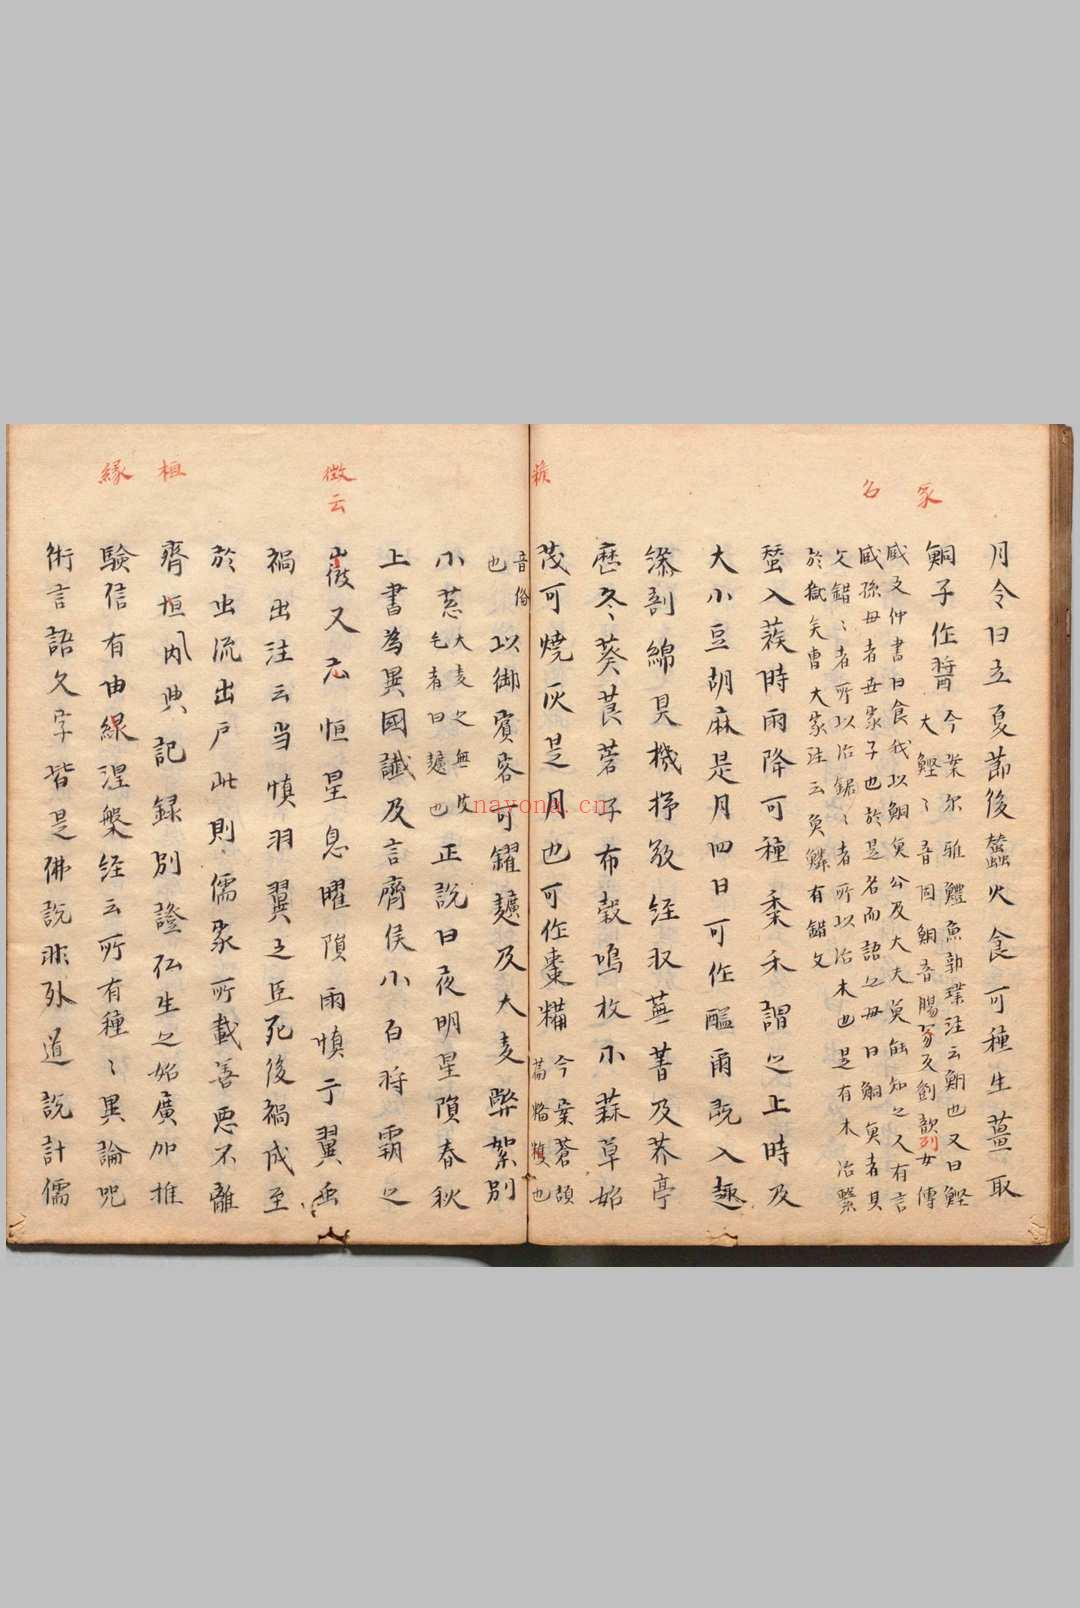 家
名
月令曰立夏節後蠶火食可種生薑取
鮦子作醬
今案尔雅鱧魚郭璞注云鮦也又曰鰹
大鰹〻音固鮦音腸冢反劉歆列女傳
臧文仲書曰食我以鮦魚公及大夫莫能知之人有言
臧孫母者世家子也於是召而語之母曰鮦魚者其
文錯〻者所以治鋸〻者所以治木也是有木治繫
於獄矣曹大家注云魚鱗有錯文
蝅入蔟時雨降可種黍禾謂之上時及
大小豆胡麻是月四日可作醢爾既入趣
滌剖綿具機杼敬經収蕪菁及芥亭
歷冬葵莨菪子布穀鳴收小蒜草始
茂可燒灰是月也可作棗糒
今案蒼頡
音俗
也
以御賓客可糴麵及大麦弊絮別
小䓗
大麦之無皮
毛者曰䵃也
正說曰夜明星隕春秋
徵
云
上書為異國讖及言齊侯小白将霸之
嶶又云恒星息曜隕雨慎于翼
禍出注云当慎羽翼之臣死後禍成至
於虫流出戶此則儒家所載善惡不離
桓
齊恒内典記録別證仏生之始廣加推
緣
驗信有由緑涅槃経云所有種〻異論咒
術言語文字皆是佛說非外道說計儒
nayona.cn